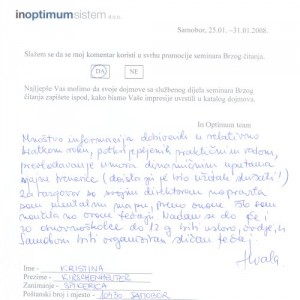 inoptimum sistem d.o.o.
Samobor, 25.01. -31.01.2008.
Slažem se da se moj komentar koristi u svrhu promocije seminara Brzog čitanja.
DA NE
Najljepše Vas molimo da svoje dojmove sa službenog dijela seminara Brzog
čitanja zapišete ispod, kako bismo Vaše impresije uvrstili u katalog dojmova.
In Optimum team
Mnoštvo informacija dobivenih u relativno
kratkom roku, potkrijepljenih praktičnim radom,
predočavanje izvora dinamičnim uputama
sjajne trenerice (doista je bio užitak slušati!)
Za razgovor sa svojim direktorom
sam mentalnu mapu, prema onome što sam
naučila na ovome tečaju. Nadam se da će i
za osnovnoškolce do 12 g. biti uskoro, ovdje, u
Samoboru biti organiziran sličan tečaj.
Hvala
Ime: KRISTINA
Prezime:
Zanimanje:
Poštanski broj i mjesto: 10430 SAMOBOR